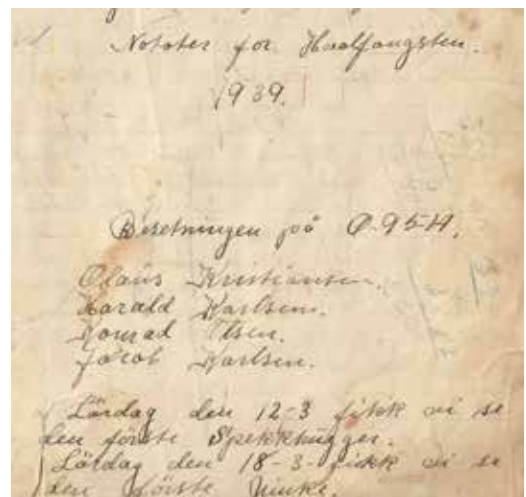 Notater for Hvalfangsten.
1939.
Besetningen på Ø-95-H.
Olaus Kristiansen.
Harald Karlsen.
Konrad Olsen.
Jacob Karlsen.
Lördag den 12-3 fikk vi se
den förste Spekkhugger.
Lördag den 18-3- fikk vi se
den förste Minke.